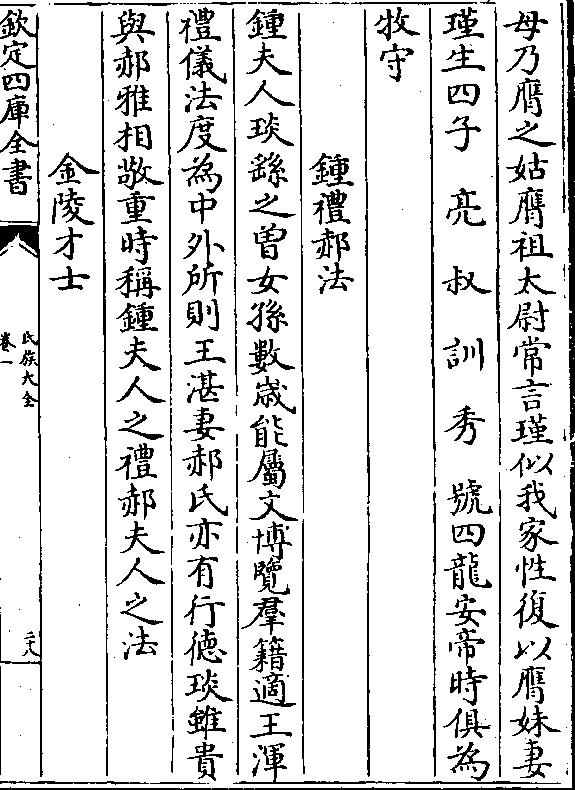 母乃膺之姑膺祖太尉常言瑾似我家性復以膺妹妻
瑾生四子 亮 叔 訓 秀 號四龍安帝時俱為
牧守
鍾禮郝法
鍾夫人琰繇之曽女孫數歳能屬文博覽羣籍適王渾
禮儀法度為中外所則王湛妻郝氏亦有行德琰雖貴
與郝雅相敬重時稱鍾夫人之禮郝夫人之法
金陵才士
欽定四庫全書
氏族大全
卷一
二八